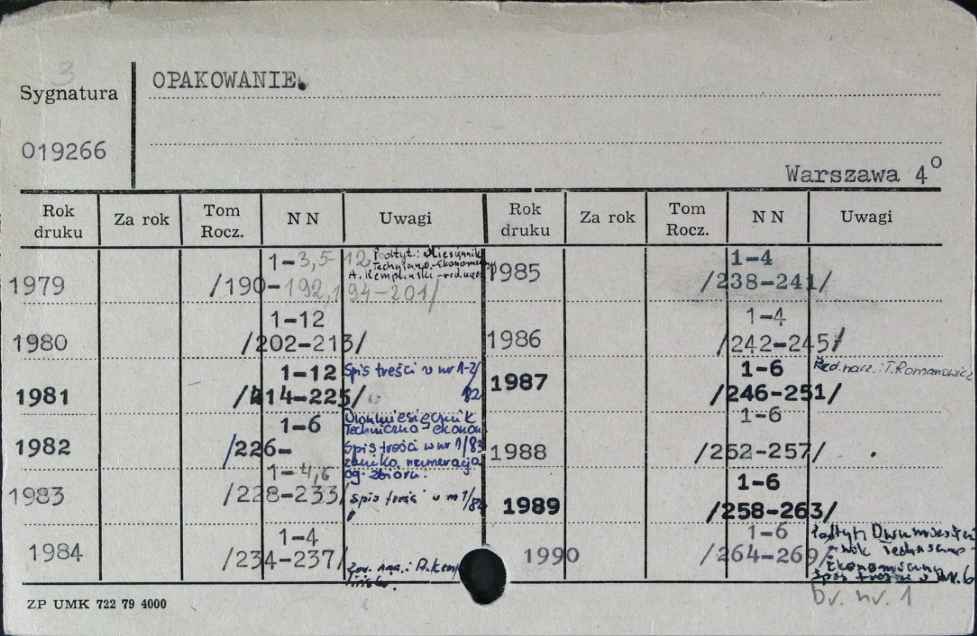 3
Sygnatura
OPAKOWANIE.
019266
Warszawa 4°
Rok druku Za rok Tom Rocz. N N Uwagi Rok druku Za rok Tom Rocz. N N Uwagi
1979 1-3,5-12 /190-192,194-201/ Podtyt.: Miesięcznik
Techniczno-Ekonomiczny
A. Kempliński
1980 1-12 /202-213/
1981 1-12 /214-225/ Spis treści w nr 1-2/
82
1982 1-6 /226- Dwumiesięcznik
Techniczno-ekonom
Spis treści w nr 1/83
zanika numeracja
og. zbioru.
1983 1-4,6 /228-233/ Spis treści w nr 1/84
1984 1-4 /234-237/
1985 1-4 /238-241/
1986 1-4 /242-245/
1987 1-6 /246-251/ Red. nacz.: T. Romanowicz
1988 1-6 /252-257/
1989 1-6 /258-263/
1990 1-6 /264-269/ Podtyt. Dwumiesięcz
nik Techniczno-
Ekonomiczny
Spis treści w nr. 6
br. nr. 1
ZP UMK 722 79 4000